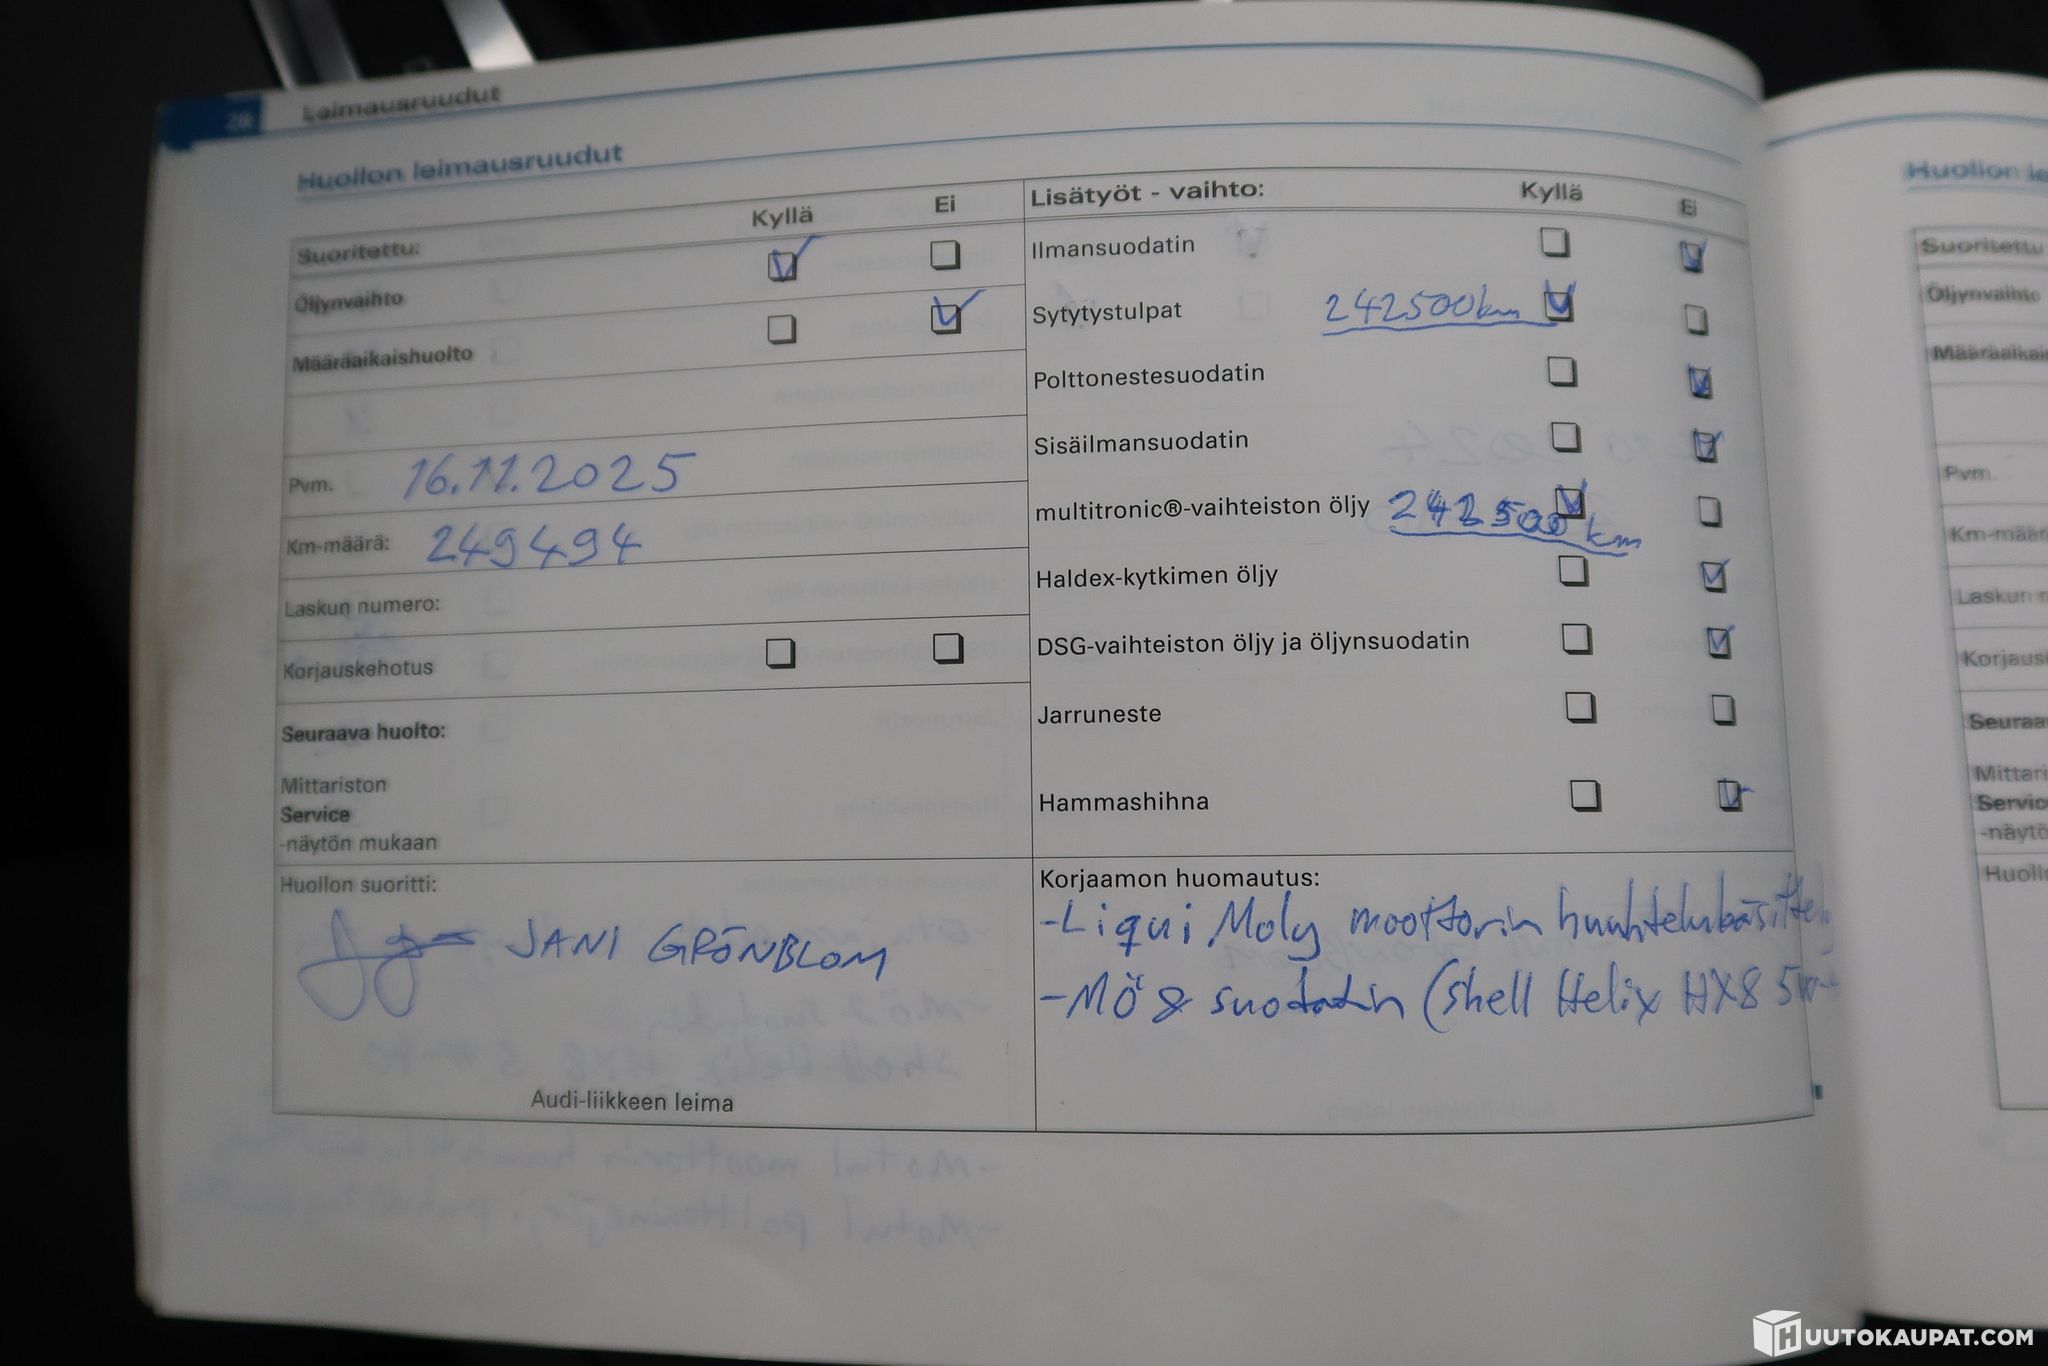 28 Leimausruudut
Huollon leimausruudut
Kyllä Ei
Suoritettu:
Öljynvaihto
Määräaikaishuolto
Pvm. 16.11.2025
Km-määrä: 249494
Laskun numero:
Korjauskehotus
Seuraava huolto:
Mittariston
Service
-näytön mukaan
Huollon suoritti:
JANI GRÖNBLOM
Audi-liikkeen leima
Lisätyöt - vaihto: Kyllä Ei
Ilmansuodatin
Sytytystulpat 242500km
Polttonestesuodatin
Sisäilmansuodatin
multitronic®-vaihteiston öljy 242500 km
Haldex-kytkimen öljy
DSG-vaihteiston öljy ja öljynsuodatin
Jarruneste
Hammashihna
Korjaamon huomautus:
-Liqui Moly moottorin
-MÖ & suodatin (shell Helix HX8
Huollon
Suoritettu
Öljynvaihto
Pvm.
Service
-näytö
HUUTOKAUPAT.COM